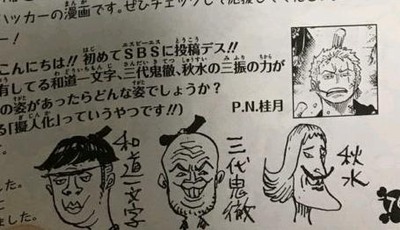 ハッカーの漫画です。ぜひチェックして応援して
ー!
こんにちは!! 初めてSBSに投稿デス!!
有してる和道一文字、三代鬼徹、秋水の三振の力が
の姿があったらどんな姿でしょうか?
る「擬人化」っていうやつです!!)
P.N.桂月
和道一文字
三代鬼徹
秋水
した。